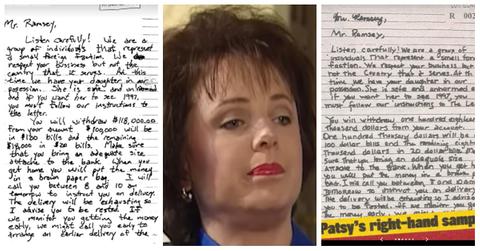 Mr. Ramsey,
Listen Carefully! We are a
group of individuals that represent
a small foreign faction. We
respect your bussiness but not the
country that it serves. At this
time we have your daughter in our
posession. She is safe and unharmed
and if you want her to see 1997,
you must follow our instructions to
the letter.
You will withdraw $118,000.00
from your account. $100,000 will be
in $100 bills and the remaining
$18,000 in $20 bills. Make sure
that you bring an adequate size
attache to the bank. When you
get home you will put the money
in a brown paper bag. I will
call you between 8 and 10 am
tomorrow to instruct you on delivery.
The delivery will be exhausting so
I advise you to be rested. If
we monitor you getting the money
early, we might call you early to
arrange an earlier delivery of the
Mr. Ramsey,
R 00
Mr. Ramsey,
Listen Carefully! We are a group of
individuals That represent a small
faction. We respect your Business but
not the Country that it serves. At this
time we have your daughter in our
possession. She is safe and unharmed
If you want her to see 1997, you
must follow our instructions to The
You will withdraw one hundred eighteen
Thousand dollars from your account.
One hundred Thousand dollars will be
100 dollar bills and the remaining eight
Thousand dollars in 20 dollar
Sure That you bring an adequate size
Attache to the Bank. When you get
Patsy's right-hand samp